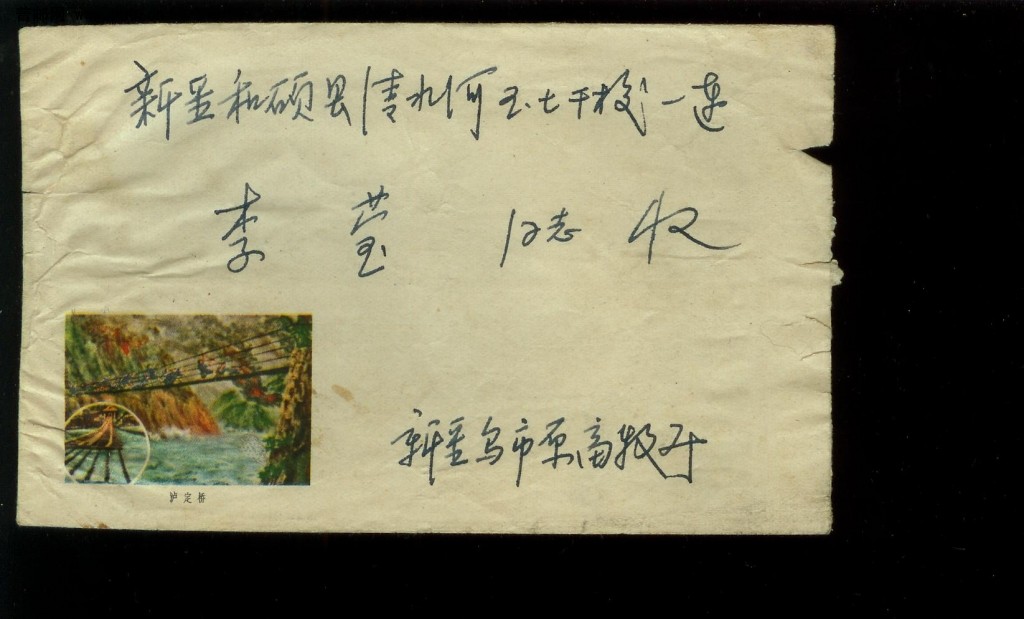 新疆和硕县清水河五七干校一连
李莹同志收
新疆乌市原畜牧厅
泸定桥